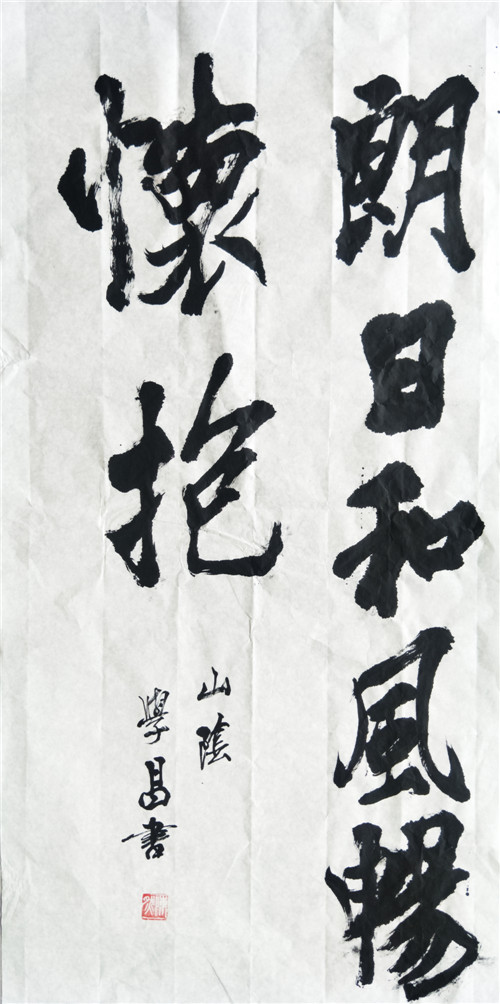 朗日和風暢
懷抱
山陰
學昌書